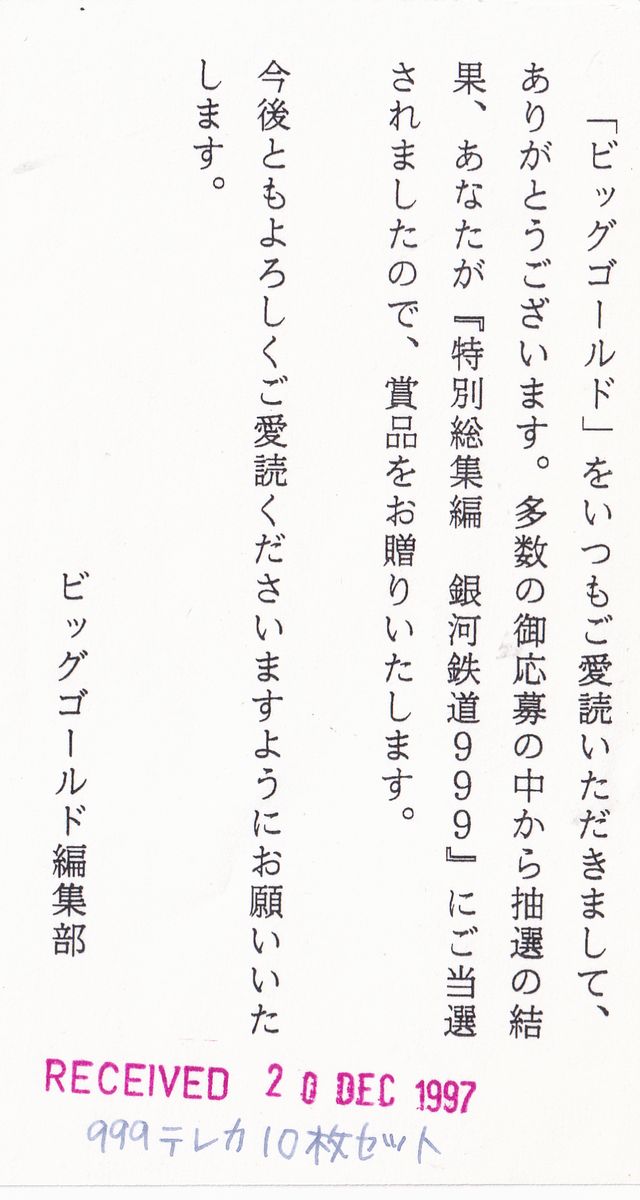 「ビッグゴールド」をいつもご愛読いただきまして、
ありがとうございます。多数の御応募の中から抽選の結
果、あなたが『特別総集編　銀河鉄道999』にご当選
されましたので、賞品をお贈りいたします。
今後ともよろしくご愛読くださいますようにお願いいた
します。
ビッグゴールド編集部
RECEIVED 20 DEC 1997
999テレカ10枚セット